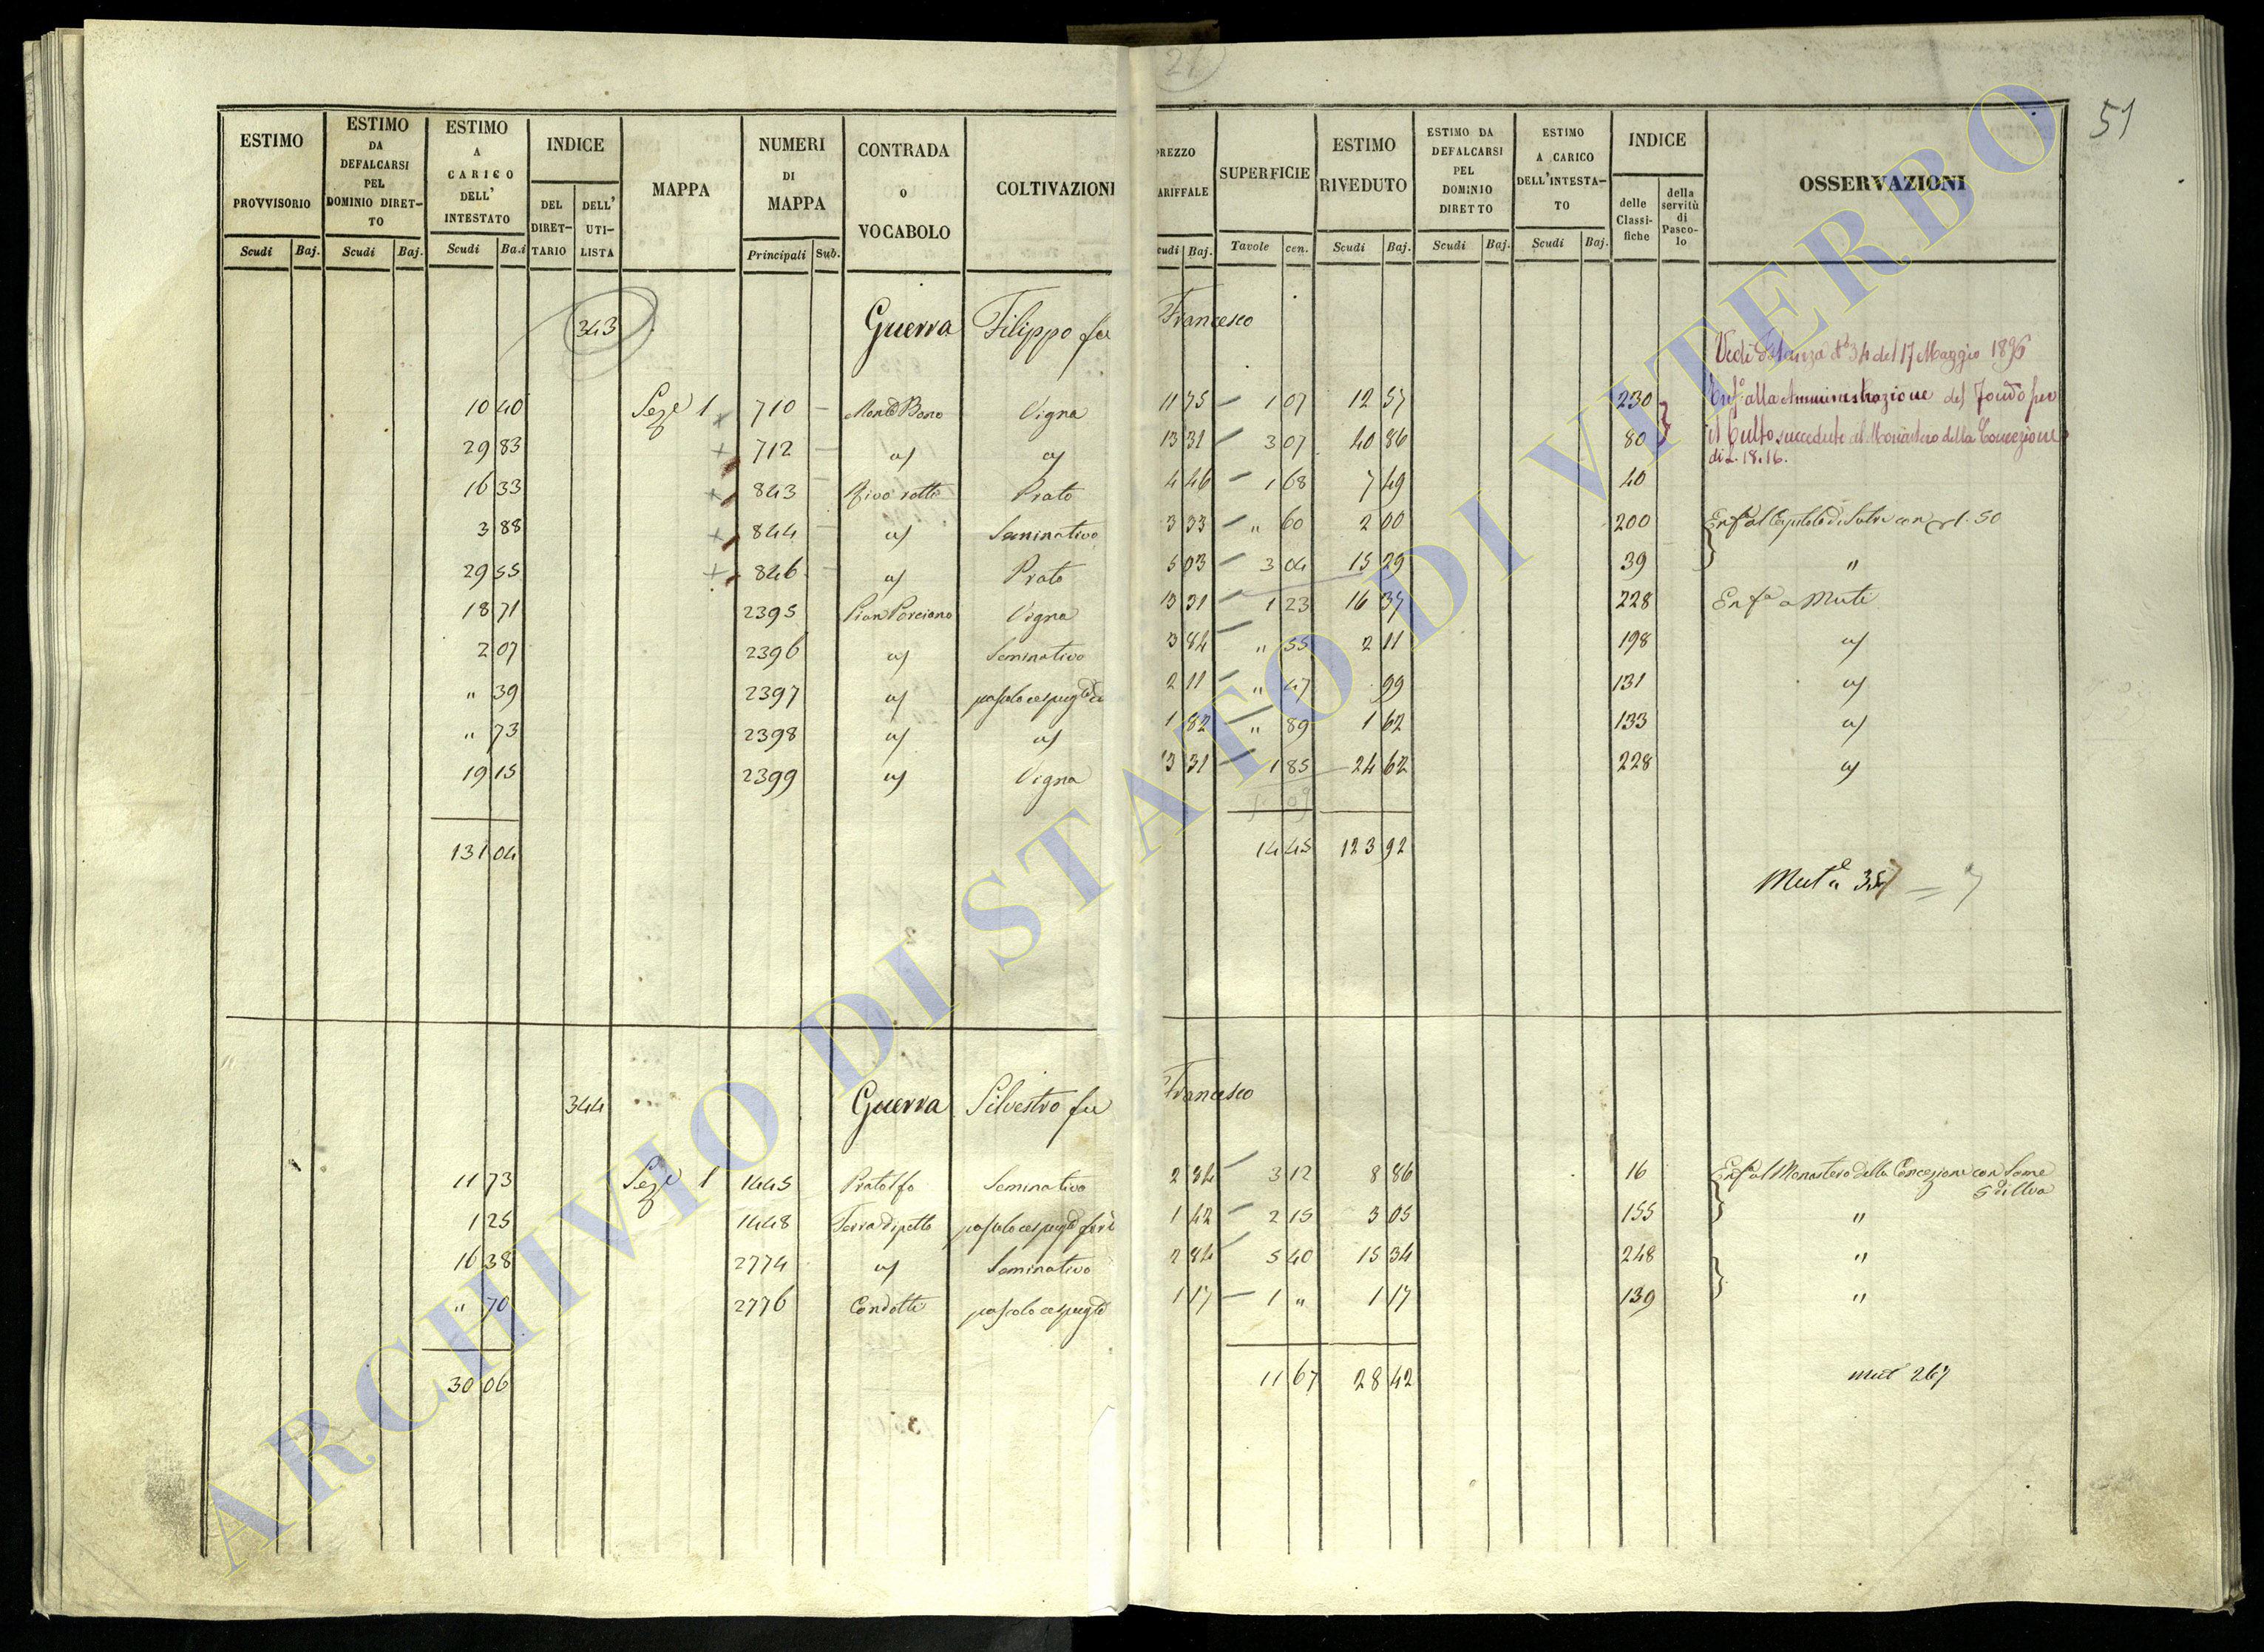 51
ESTIMO PROVVISORIO Scudi Baj.
ESTIMO DA DEFALCARSI PEL DOMINIO DIRETTO Scudi Baj.
ESTIMO A CARICO DELL' INTESTATO Scudi Ba.i
INDICE DEL DIRETTARIO DELL' UTILISTA
MAPPA
NUMERI DI MAPPA Principali Sub.
CONTRADA o VOCABOLO
COLTIVAZIONI
PREZZO TARIFFALE Scudi Baj.
SUPERFICIE Tavole cen.
ESTIMO RIVEDUTO Scudi Baj.
ESTIMO DA DEFALCARSI PEL DOMINIO DIRETTO Scudi Baj.
ESTIMO A CARICO DELL'INTESTATO Scudi Baj.
INDICE delle Classifiche della servitù di Pascolo
OSSERVAZIONI
343 Guerra Filippo fu Francesco
Vedi Istanza No 34 del 17 Maggio 1896
10 40 Seze 1 710 Monte Bono Vigna 11 75 1 07 12 57 230 Enfa alla Amministrazione del Fondo per
29 83 712 a/ a/ 13 31 3 07 40 86 80 il Culto succeduto al Monastero della Concezione
di L. 18.16.
16 33 843 Rivo rotto Prato 4 46 1 68 7 49 40
3 88 844 a/ Seminativo 3 33 " 60 2 00 200 Enfa al Capitolo di Sutri con 1.50
29 55 846 a/ Prato 5 03 3 04 15 29 39 "
18 71 2395 Pian Porciano Vigna 13 31 1 23 16 37 228 Enfa a Muti
2 07 2396 a/ Seminativo 3 84 " 55 2 11 198 a/
" 39 2397 a/ pascolo cespugto 2 11 " 47 99 131 a/
" 73 2398 a/ a/ 1 82 " 89 1 62 133 a/
19 15 2399 a/ Vigna 13 31 1 85 24 62 228 a/
131 04 14 45 123 92
Muta 357 = 7
344 Guerra Silvestro fu Francesco
11 73 Seze 1 1445 Pratolfo Seminativo 2 84 3 12 8 86 16 Enfa al Monastero della Concezione con Some
5 di Uva
1 25 1448 pascolo cespugto 1 42 2 15 3 05 155 "
16 38 2774 a/ Seminativo 2 84 5 40 15 34 248 "
" 70 2776 Condotti pascolo cespugto 1 17 1 " 1 17 139 "
30 06 11 67 28 42
mut 267
ARCHIVIO DI STATO DI VITERBO